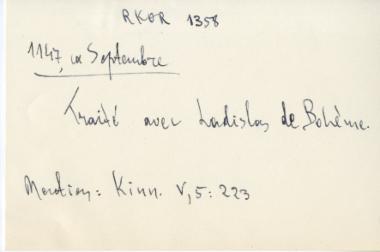 RKOR 1358
1147, ca Septembre
Traité avec Ladislas de Bohème.
Mention: Kinn. V, 5: 223